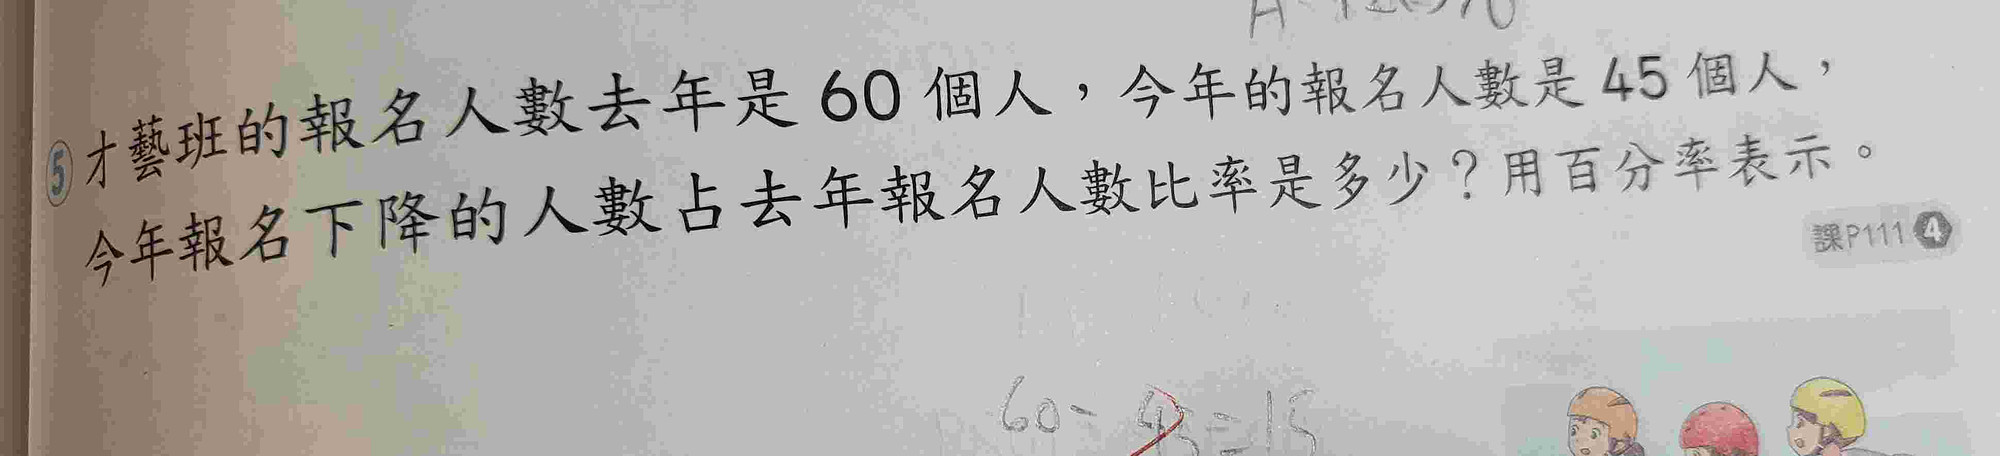 ⑤才藝班的報名人數去年是 60 個人，今年的報名人數是 45 個人，
今年報名下降的人數占去年報名人數比率是多少？用百分率表示。
課P111 4
60 - 45 = 15